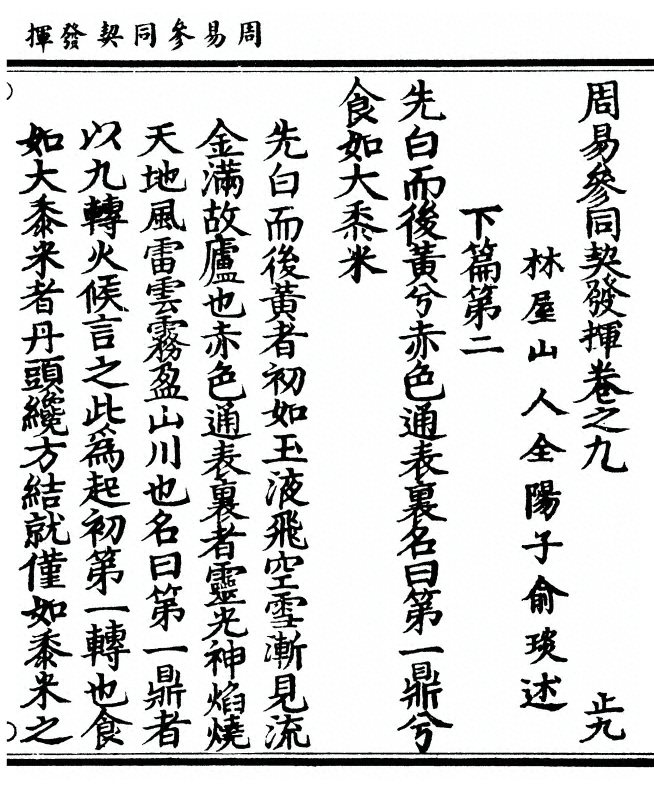 周易參同契發揮
周易參同契發揮卷之九 正九
林屋山人全陽子俞琰述
下篇第二
先白而後黃兮赤色通表裏名曰第一鼎兮
食如大黍米
先白而後黃者初如玉液飛空雪漸見流
金滿故廬也赤色通表裏者靈光神焰燒
天地風雷雲霧盈山川也名曰第一鼎者
以九轉火候言之此為起初第一轉也食
如大黍米者丹頭纔方結就僅如黍米之